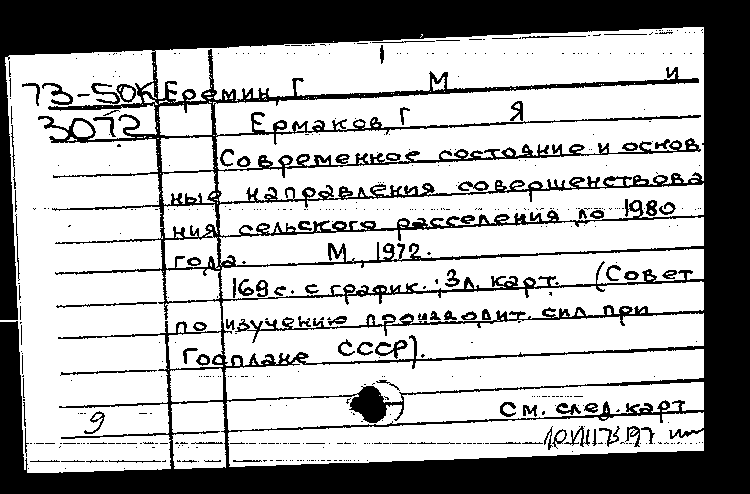 73-50К Еремин, Г М и
3072 Ермаков, Г Я
Современное состояние и основ-
ные направления совершенствова
ния сельского расселения до 1980
года. М., 1972.
169 с. с график.; 3 л. карт. (Совет
по изучению производит. сил при
Госплане СССР).
9 См. след. карт